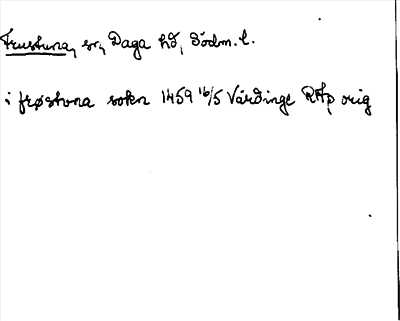 Frustuna, sn, Daga hd, Södm. l.
i frøstona sokn 1459 16/5 Vårdinge RAp orig